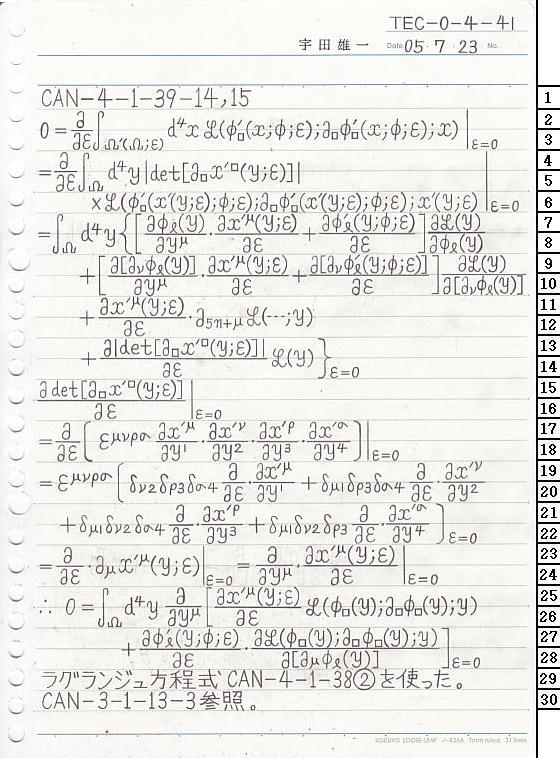 TEC-0-4-41
宇田雄一 Date 05・7・23 No.
CAN-4-1-39-14,15
0=∂/∂ε∫_Ω'(Ω;ε) d⁴x ℒ(φ'□(x;φ;ε);∂□φ'□(x;φ;ε);x)|ε=0
=∂/∂ε∫_Ω d⁴y|det[∂□x'□(y;ε)]|
×ℒ(φ'□(x'(y;ε);φ;ε);∂□φ'□(x'(y;ε);φ;ε);x'(y;ε))|ε=0
=∫_Ω d⁴y{[∂φℓ(y)/∂y^μ・∂x'^μ(y;ε)/∂ε+∂φ'ℓ(y;φ;ε)/∂ε]∂ℒ(y)/∂φℓ(y)
+[∂[∂νφℓ(y)]/∂y^μ・∂x'^μ(y;ε)/∂ε+∂[∂νφ'ℓ(y;φ;ε)]/∂ε]∂ℒ(y)/∂[∂νφℓ(y)]
+∂x'^μ(y;ε)/∂ε・∂5n+μ ℒ(…;y)
+∂|det[∂□x'□(y;ε)]|/∂ε ℒ(y)}ε=0
∂det[∂□x'□(y;ε)]/∂ε|ε=0
=∂/∂ε(ε^μνρσ ∂x'^μ/∂y¹・∂x'^ν/∂y²・∂x'^ρ/∂y³・∂x'^σ/∂y⁴)|ε=0
=ε^μνρσ(δν2δρ3δσ4 ∂/∂ε・∂x'^μ/∂y¹+δμ1δρ3δσ4 ∂/∂ε・∂x'^ν/∂y²
+δμ1δν2δσ4 ∂/∂ε・∂x'^ρ/∂y³+δμ1δν2δρ3 ∂/∂ε・∂x'^σ/∂y⁴)ε=0
=∂/∂ε・∂μx'^μ(y;ε)|ε=0=∂/∂y^μ・∂x'^μ(y;ε)/∂ε|ε=0
∴ 0=∫_Ω d⁴y ∂/∂y^μ[∂x'^μ(y;ε)/∂ε ℒ(φ□(y);∂□φ□(y);y)
+∂φ'ℓ(y;φ;ε)/∂ε・∂ℒ(φ□(y);∂□φ□(y);y)/∂[∂μφℓ(y)]]ε=0
ラグランジュ方程式CAN-4-1-38②を使った。
CAN-3-1-13-3参照。
KOKUYO LOOSE-LEAF ノ-836A 7mm ruled 31 lines
1
2
3
4
5
6
7
8
9
10
11
12
13
14
15
16
17
18
19
20
21
22
23
24
25
26
27
28
29
30